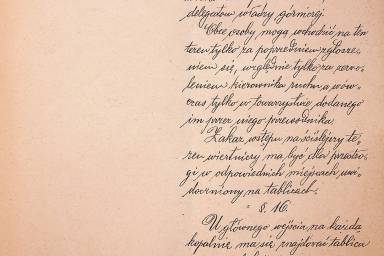 delegatom władzy górniczej.
Obce osoby mogą wchodzić na ten
teren tylko za poprzedniem zgłosze-
niem się, względnie tylko za zezwo-
leniem kierownika ruchu a wów-
czas tylko w towarzystwie dodanego
im przez niego przewodnika.
Zakaz wstępu na ściślejszy te-
ren wiertniczy ma być dla przestro-
gi w odpowiednich miejscach uwi-
doczniony na tablicach.
§. 16.
U głównego wejścia na każdą
kopalnię ma się znajdować tablica